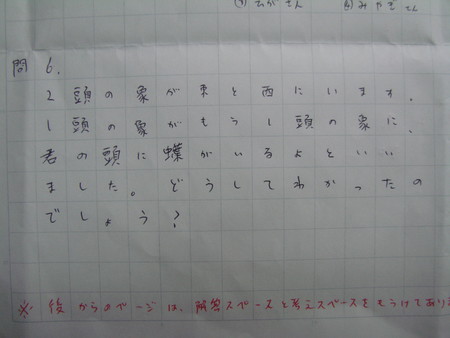 (4) みやぎさん
問 6.
2 頭の象が東と西にいます.
1 頭の象がもう 1 頭の象に、
君の頭に蝶がいるよといい
ました。どうしてわかったの
でしょう?
※ 後からのページは、解答スペースと考えスペースをもうけてあり